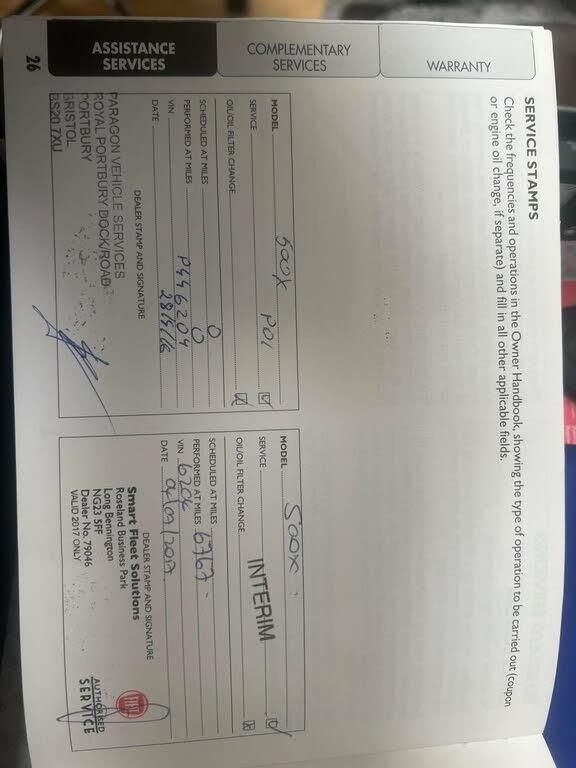 WARRANTY
COMPLEMENTARY
SERVICES
ASSISTANCE
SERVICES
26
SERVICE STAMPS
Check the frequencies and operations in the Owner Handbook, showing the type of operation to be carried out (coupon
or engine oil change, if separate) and fill in all other applicable fields.
MODEL 500X
SERVICE PDI
OIL/OIL FILTER CHANGE
SCHEDULED AT MILES 0
PERFORMED AT MILES 0
VIN P446204
DATE
DEALER STAMP AND SIGNATURE
PARAGON VEHICLE SERVICES
ROYAL PORTBURY DOCK ROAD
PORTBURY
BRISTOL
BS20 7XU
MODEL 500X
SERVICE INTERIM
OIL/OIL FILTER CHANGE
SCHEDULED AT MILES
PERFORMED AT MILES 6767
VIN 6204
DATE
DEALER STAMP AND SIGNATURE
Smart Fleet Solutions
Roseland Business Park
Long Bennington
NG23 5FF
Dealer No. 79046
VALID 2017 ONLY
FIAT
AUTHORISED
SERVICE